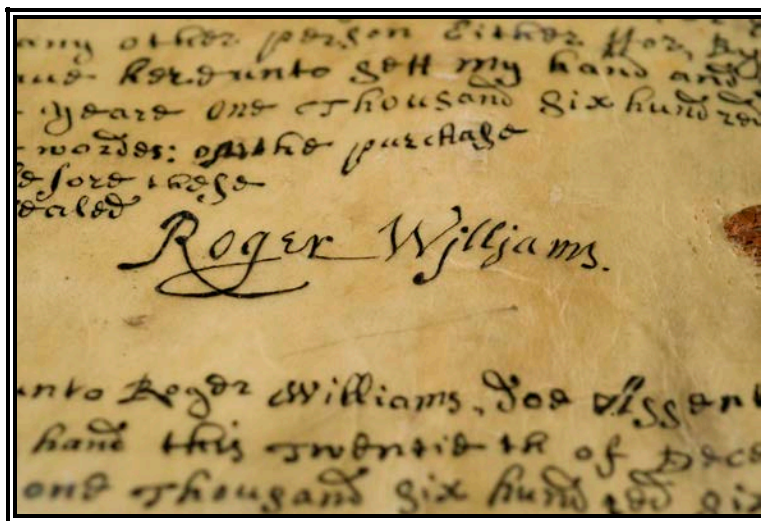 any other person Either ffor, By
hereunto sett my hand and
Yeare one Thousand Six hundred
wordes: the purchase
fore these
sealed
Roger Williams.
unto Roger Williams, doe Assent
hand this Twentieth of Dece
one Thousand Six hundred Six